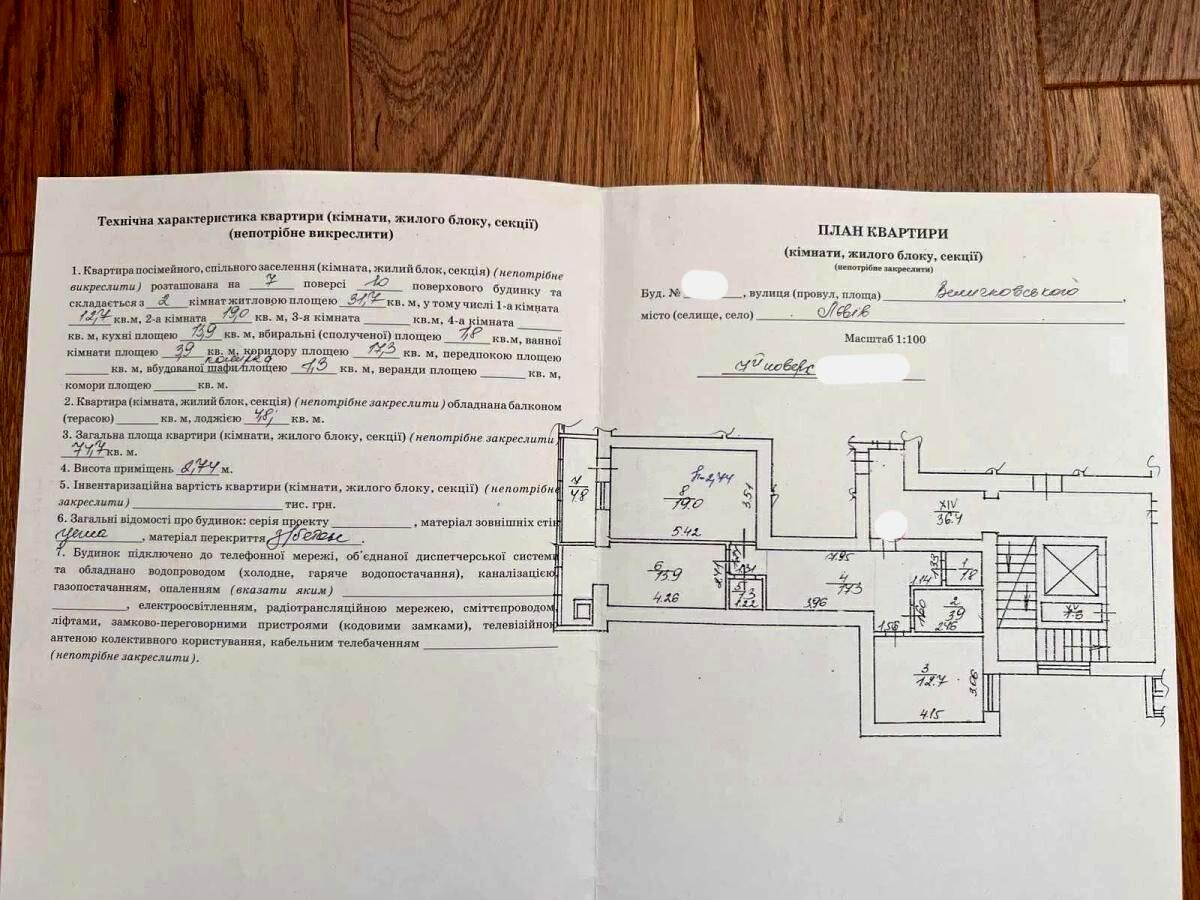 Технічна характеристика квартири (кімнати, жилого блоку, секції)
(непотрібне викреслити)
1. Квартира посімейного, спільного заселення (кімната, жилий блок, секція) (непотрібне
викреслити) розташована на 7 поверсі 10 поверхового будинку та
складається з 2 кімнат житловою площею 31,7 кв. м, у тому числі 1-а кімната
12,7 кв.м, 2-а кімната 19,0 кв. м, 3-я кімната ______ кв.м, 4-а кімната ______
кв. м, кухні площею 15,9 кв. м, вбиральні (сполученої) площею 1,8 кв.м, ванної
кімнати площею 3,9 кв. м, коридору площею 17,3 кв. м, передпокою площею
______ кв. м, вбудованої шафи площею 1,3 кв. м, веранди площею ______ кв. м,
комори площею ______ кв. м.
2. Квартира (кімната, жилий блок, секція) (непотрібне закреслити) обладнана балконом
(терасою) ______ кв. м, лоджією 4,8 кв. м.
3. Загальна площа квартири (кімнати, жилого блоку, секції) (непотрібне закреслити)
77,7 кв. м.
4. Висота приміщень 2,74 м.
5. Інвентаризаційна вартість квартири (кімнати, жилого блоку, секції) (непотрібне
закреслити) ______ тис. грн.
6. Загальні відомості про будинок: серія проекту ______, матеріал зовнішніх стін
цегла, матеріал перекриття з/бетон.
7. Будинок підключено до телефонної мережі, об'єднаної диспетчерської системи
та обладнано водопроводом (холодне, гаряче водопостачання), каналізацією,
газопостачанням, опаленням (вказати яким) ______
______, електроосвітленням, радіотрансляційною мережею, сміттєпроводом,
ліфтами, замково-переговорними пристроями (кодовими замками), телевізійною
антеною колективного користування, кабельним телебаченням ______
(непотрібне закреслити).
ПЛАН КВАРТИРИ
(кімнати, жилого блоку, секції)
(непотрібне закреслити)
Буд. № ______, вулиця (провул, площа) Величковського,
місто (селище, село) Львів
Масштаб 1:100
7й поверх
7
4.8
h=2,74
8
19.0
3.51
5.42
6
15.9
4.26
1.31
5
1.3
1.22
7.95
4
17.3
3.96
1.14
1.33
1
1.8
1.60
2
3.9
2.46
1.56
3
12.7
3.06
4.15
XIV
36.4
XV